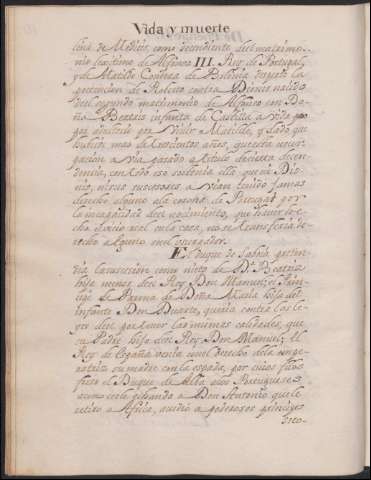 Vida y muerte
lina de Medicis, como decendiente del matrimo-
nio lexitimo de Alfonso III. Rey de Portugal,
y de Matilde Condesa de Bolonia despues la
pretencion de Roberto contra Dionis nasido
del segundo matrimonio de Alfonso con Do-
ña Beatris infanta de Castilla
por viuir Matilde, y dado que
mas de trecientos años, que esta usur-
pacion a via pasado a titulo de
dencia, con todo eso sostenia ella que ni Dio-
nis, ni sus sucessores a vian tenido jamas
derecho alguno a la corona de Portugal por
la incapacidad del nacimiento, que
en la cosa, no se transferia de-
recho alguno en el ocupador.
El Duque de Saboia preten-
dia la succion como nieto de D.ª Beatris
hija menor del Rey Don Manuel; el Prin-
cipe de Parma de Doña Maria hija del
infante Don Duarte, queria contra las le-
yes del pais tener las mismas calidades, que
su Padre hijo del Rey Don Manuel; el
Rey de España venia con el derecho de la empe-
ratriz su madre con la espada, por cuios fines
fuese el Duque de Alba a los Portugueses
a Don Antonio que se
retiro a Africa, acudio a poderosos principes
sito-